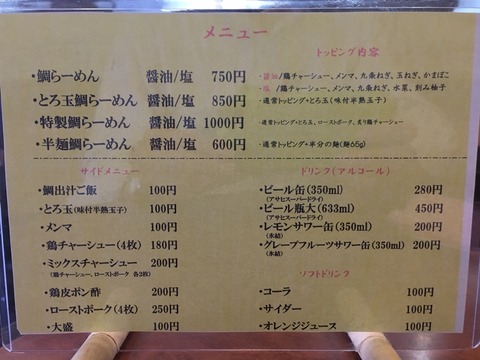 メニュー
トッピング内容
・鯛らーめん 醤油/塩 750円
・醤油/鶏チャーシュー、メンマ、九条ねぎ、玉ねぎ、かまぼこ
・塩 /鶏チャーシュー、メンマ、九条ねぎ、水菜、刻み柚子
・とろ玉鯛らーめん 醤油/塩 850円
・通常トッピング・とろ玉(味付半熟玉子)
・特製鯛らーめん 醤油/塩 1000円
・通常トッピング・とろ玉、ローストポーク、炙り鶏チャーシュー
・半麺鯛らーめん 醤油/塩 600円
・通常トッピング・半分の麺(麺65g)
サイドメニュー
・鯛出汁ご飯 100円
・とろ玉(味付半熟玉子) 100円
・メンマ 100円
・鶏チャーシュー(4枚) 180円
・ミックスチャーシュー 200円
(鶏チャーシュー、ローストポーク 各2枚)
・鶏皮ポン酢 200円
・ローストポーク(4枚) 250円
・大盛 100円
ドリンク(アルコール)
・ビール缶(350ml) 280円
(アサヒスーパードライ)
・ビール瓶大(633ml) 450円
(アサヒスーパードライ)
・レモンサワー缶(350ml) 200円
(氷結)
・グレープフルーツサワー缶(350ml) 200円
(氷結)
ソフトドリンク
・コーラ 100円
・サイダー 100円
・オレンジジュース 100円